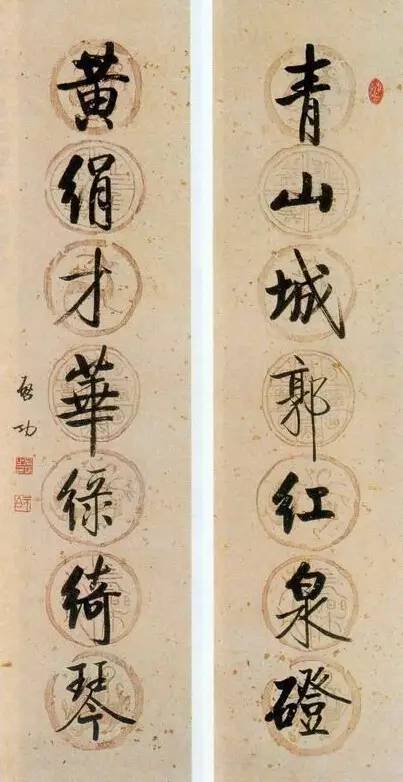 青山城郭红泉磴
黄绢才華绿绮琴
启功